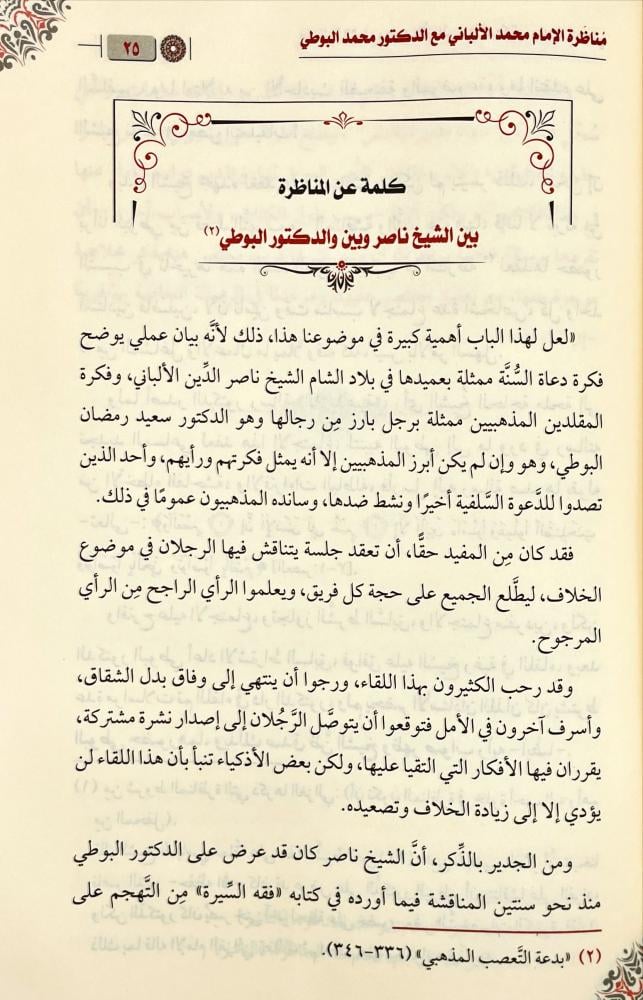 مُناظَرة الإمام محمد الألباني مع الدكتور محمد البوطي
٢٥
كلمة عن المناظرة
بين الشيخ ناصر وبين والدكتور البوطي (٢)
«لعل لهذا الباب أهمية كبيرة في موضوعنا هذا، ذلك لأنَّه بيان عملي يوضح
فكرة دعاة السُّنَّة ممثلة بعميدها في بلاد الشام الشيخ ناصر الدِّين الألباني، وفكرة
المقلدين المذهبيين ممثلة برجل بارز مِن رجالها وهو الدكتور سعيد رمضان
البوطي، وهو وإن لم يكن أبرز المذهبيين إلا أنه يمثل فكرتهم ورأيهم، وأحد الذين
تصدوا للدَّعوة السَّلفية أخيرًا ونشط ضدها، وسانده المذهبيون عمومًا في ذلك.
فقد كان مِن المفيد حقًّا، أن تعقد جلسة يتناقش فيها الرجلان في موضوع
الخلاف، ليطَّلع الجميع على حجة كل فريق، ويعلموا الرأي الراجح مِن الرأي
المرجوح.
وقد رحب الكثيرون بهذا اللقاء، ورجوا أن ينتهي إلى وفاق بدل الشقاق،
وأسرف آخرون في الأمل فتوقعوا أن يتوصَّل الرَّجُلان إلى إصدار نشرة مشتركة،
يقرران فيها الأفكار التي التقيا عليها، ولكن بعض الأذكياء تنبأ بأن هذا اللقاء لن
يؤدي إلا إلى زيادة الخلاف وتصعيده.
ومن الجدير بالذِّكر، أنَّ الشيخ ناصر كان قد عرض على الدكتور البوطي
منذ نحو سنتين المناقشة فيما أورده في كتابه «فقه السِّيرة» مِن التَّهجم على
(٢) «بدعة التَّعصب المذهبي» (٣٣٦-٣٤٦).